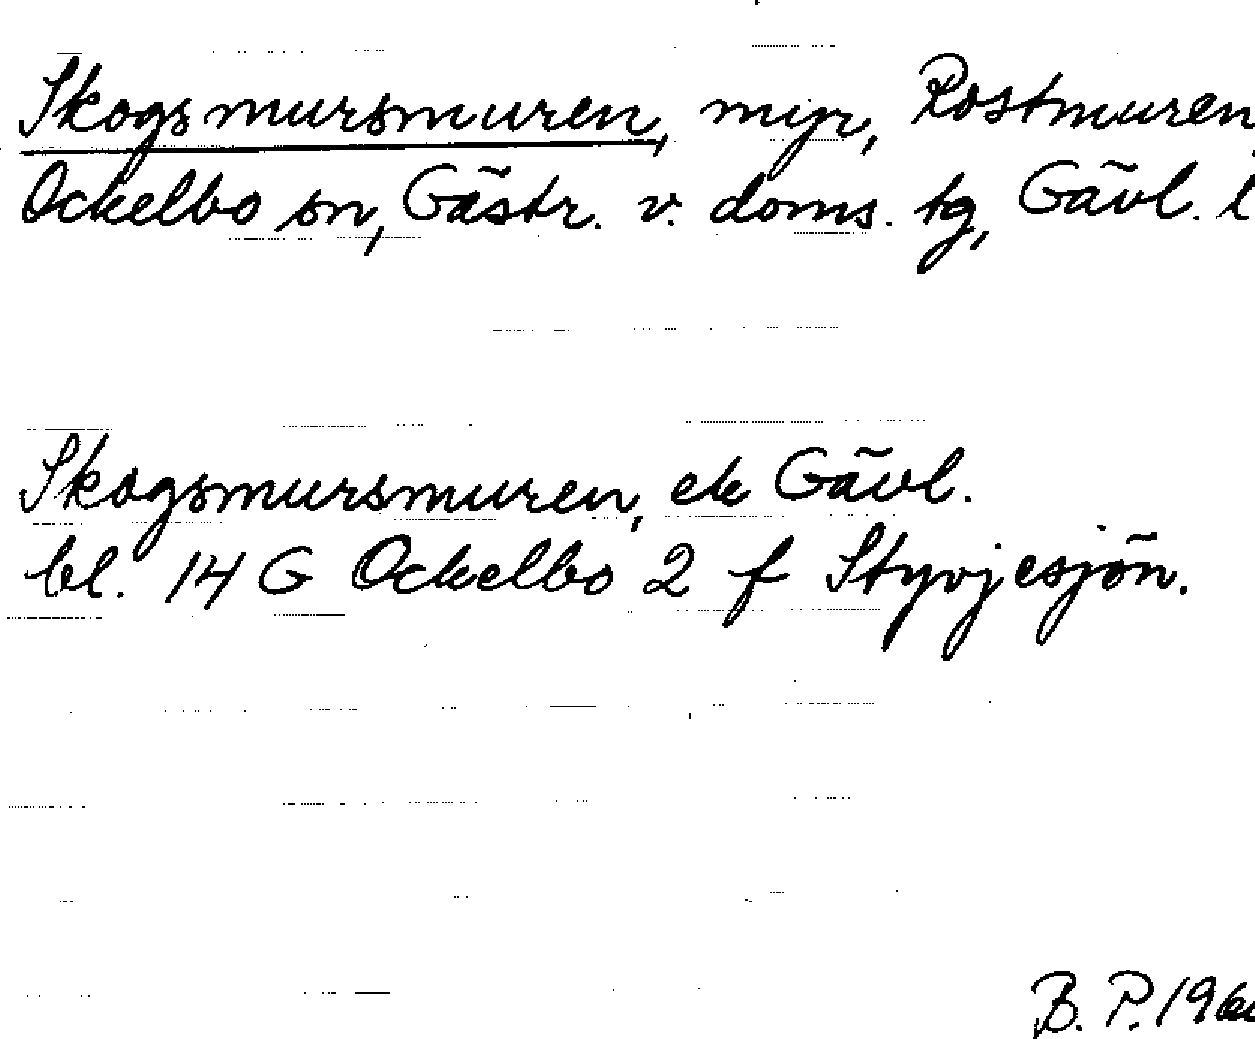 Skogsmursmuren, myr, Rostmuren,
Ockelbo sn, Gästr. v. doms. tg, Gävl. l
Skogsmursmuren, ek Gävl.
bl. 14 G Ockelbo 2 f Styvjesjön.
B. P.